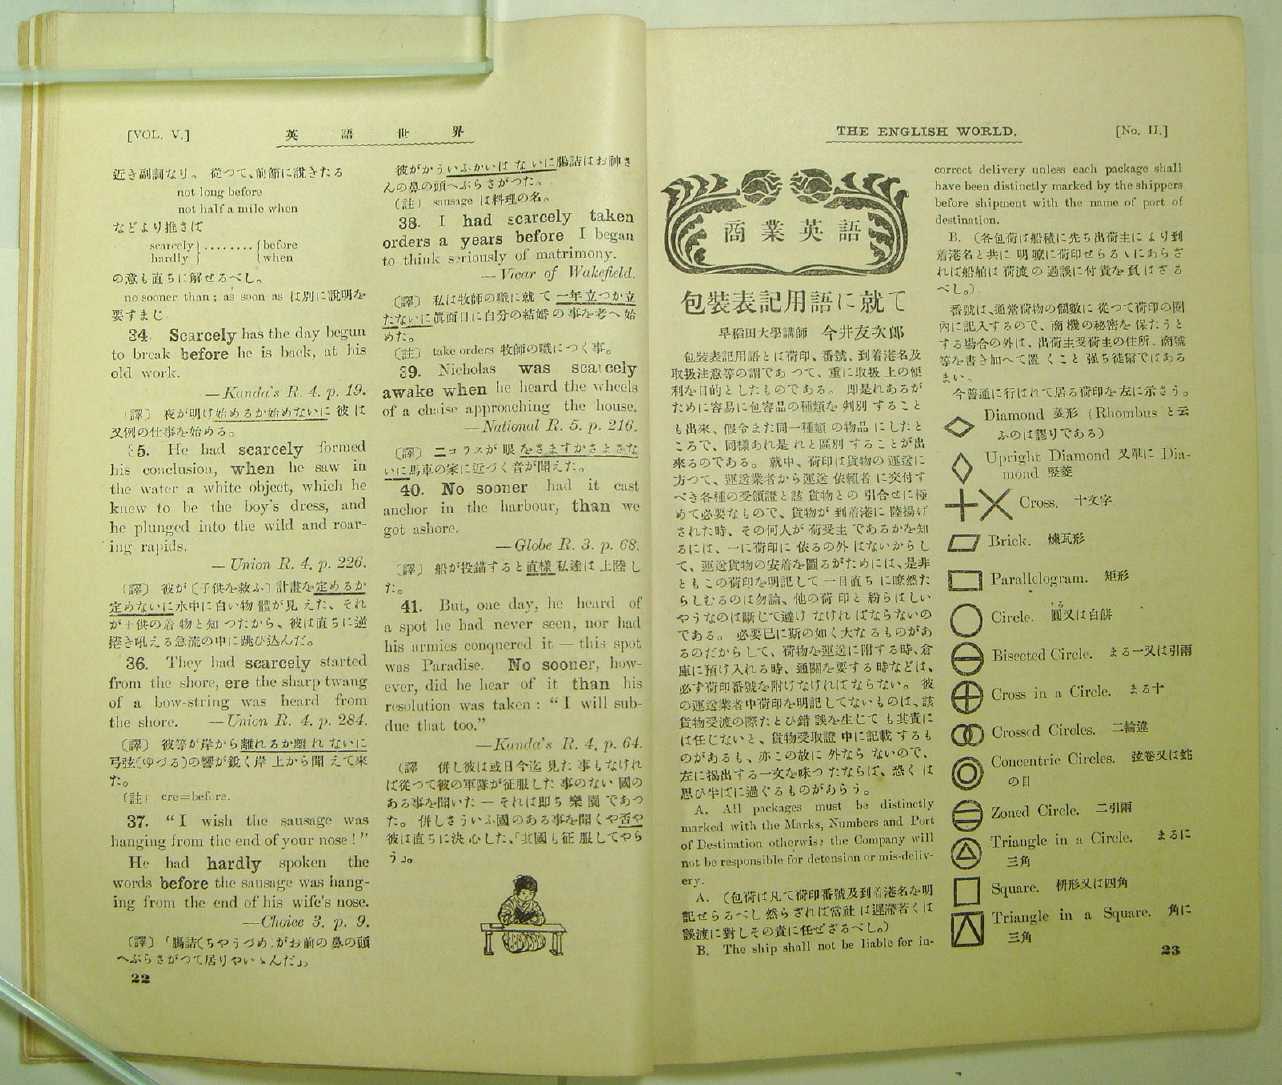 [VOL. V.]
英語世界
近き副詞なり。從つて、前節に説きたる
not long before
not half a mile when
などより推さば
scarcely}........{before
hardly}{when
の意も直ちに解せるべし。
no sooner than; as soon as は別に説明を
要すまじ
34. Scarcely has the day begun
to break before he is back, at his
old work.
—Kanda's R. 4. p. 19.
〔譯〕 夜が明け始めるか始めないに 彼は
又例の仕事を始める。
35. He had scarcely formed
his conclusion, when he saw in
the water a white object, which he
knew to be the boy's dress, and
he plunged into the wild and roar-
ing rapids.
—Union R. 4. p. 226.
〔譯〕 彼が(子供を救ふ)計畫を定めるか
定めないに水中に白い物體が見えた、それ
が子供の着物と知つたから、彼は直ちに逆
捲き吼える急流の中に跳び込んだ。
36. They had scarcely started
from the shore, ere the sharp twang
of a bow-string was heard from
the shore. —Union R. 4. p. 284.
〔譯〕 彼等が岸から離れるか離れないに
弓弦(ゆづる)の響が鋭く岸上から聞えて來
た。
〔註〕 ere=before.
37. "I wish the sausage was
hanging from the end of your nose!"
He had hardly spoken the
words before the sausage was hang-
ing from the end of his wife's nose.
—Choice 3. p. 9.
〔譯〕「腸詰(ちやうづめ)がお前の鼻の頭
へぶらさがつて居りやいゝんだ」。
22
彼がかういふかいはないに腸詰はお神さ
んの鼻の頭へぶらさがつた。
〔註〕 sausage は料理の名。
38. I had scarcely taken
orders a years before I began
to think seriously of matrimony.
—Vicar of Wakefield.
〔譯〕 私は牧師の職に就て一年立つか立
たないに眞面目に自分の結婚の事を考へ始
めた。
〔註〕 take orders 牧師の職につく事。
39. Nicholas was scarcely
awake when he heard the wheels
of a chaise approaching the house.
—National R. 5. p. 216.
〔譯〕 ニコラスが眼をさますかさまさな
いに馬車の家に近づく音が聞えた。
40. No sooner had it cast
anchor in the harbour, than we
got ashore.
—Globe R. 3. p. 68.
〔譯〕 船が投錨すると直樣私達は上陸し
た。
41. But, one day, he heard of
a spot he had never seen, nor had
his armies conquered it—this spot
was Paradise. No sooner, how-
ever, did he hear of it than his
resolution was taken: "I will sub-
due that too."
—Kanda's R. 4. p. 64.
〔譯〕 併し彼は或日今迄見た事もなけれ
ば從つて彼の軍隊が征服した事のない國の
ある事を聞いた—それは即ち樂園であつ
た。併しさういふ國のある事を聞くや否や
彼は直ちに決心した、「其國も征服してやら
う」。
THE ENGLISH WORLD.
[No. II.]
商業英語
包裝表記用語に就て
早稻田大學講師 今井友次郎
包裝表記用語とは荷印、番號、到着港名及
取扱注意等の謂であつて、重に取扱上の便
利を目的としたものである。即是れあるが
ために容易に包容品の種類を判別すること
も出來、假令また同一種類の物品にしたと
ころで、同樣あれ是れと區別することが出
來るのである。就中、荷印は貨物の運送に
方つて、運送業者から運送依賴者に交付す
べき各種の受領證と該貨物との引合せに極
めて必要なもので、貨物が到着港に陸揚げ
された時、その何人が荷受主であるかを知
るには、一に荷印に依るの外はないからし
て、運送貨物の安着を圖るがためには、是非
ともこの荷印を明記して一目直ちに瞭然た
らしむるのは勿論、他の荷印と紛らはしい
やうなのは斷じて避けなければならないの
である。必要已に斯の如く大なるものがあ
るのだからして、荷物を運送に附する時、倉
庫に預け入れる時、通關を要する時などは、
必ず荷印番號を附けなければならない。彼
の運送業者中荷印を明記してないものは、該
貨物受渡の際たとひ錯誤を生じても其責に
は任じないと、貨物受取證中に記載するも
のがあるも、亦この故に外ならないので、
左に揭出する一文を味つたならば、恐くは
思ひ半ばに過ぐるものがあらう。
A. All packages must be distinctly
marked with the Marks, Numbers and Port
of Destination otherwise the Company will
not be responsible for detension or mis-deliv-
ery.
A. (包荷は凡て荷印番號及到着港名を明
記せらるべし然らざれば當社は遲滯若くは
誤渡に對しその責に任ぜざるべし。)
B. The ship shall not be liable for in-
correct delivery unless each package shall
have been distinctly marked by the shippers
before shipment with the name of port of
destination.
B. (各包荷は船積に先ち出荷主により到
着港名と共に明瞭に荷印せらるゝにあらざ
れば船舶は荷渡の過誤に付責を負はざる
べし。)
番號は、通常荷物の個數に從つて荷印の圈
內に記入するので、商機の秘密を保たうと
する場合の外は、出荷主受荷主の住所、商號
等を書き加へて置くこと强ち徒爾ではある
まい。
今普通に行はれて居る荷印を左に示さう。
Diamond 菱形 (Rhombus と云
ふのは誤りである)
Upright Diamond 又單に Dia-
mond 竪菱
Cross. 十文字
Brick. 煉瓦形
Parallelogram. 矩形
Circle. 圓又は白餅
Bisected Circle. まる一又は引兩
Cross in a Circle. まる十
Crossed Circles. 二輪違
Concentric Circles. 弦卷又は蛇
の目
Zoned Circle. 二引兩
Triangle in a Circle. まるに
三角
Square. 枡形又は四角
Triangle in a Square. 角に
三角
23